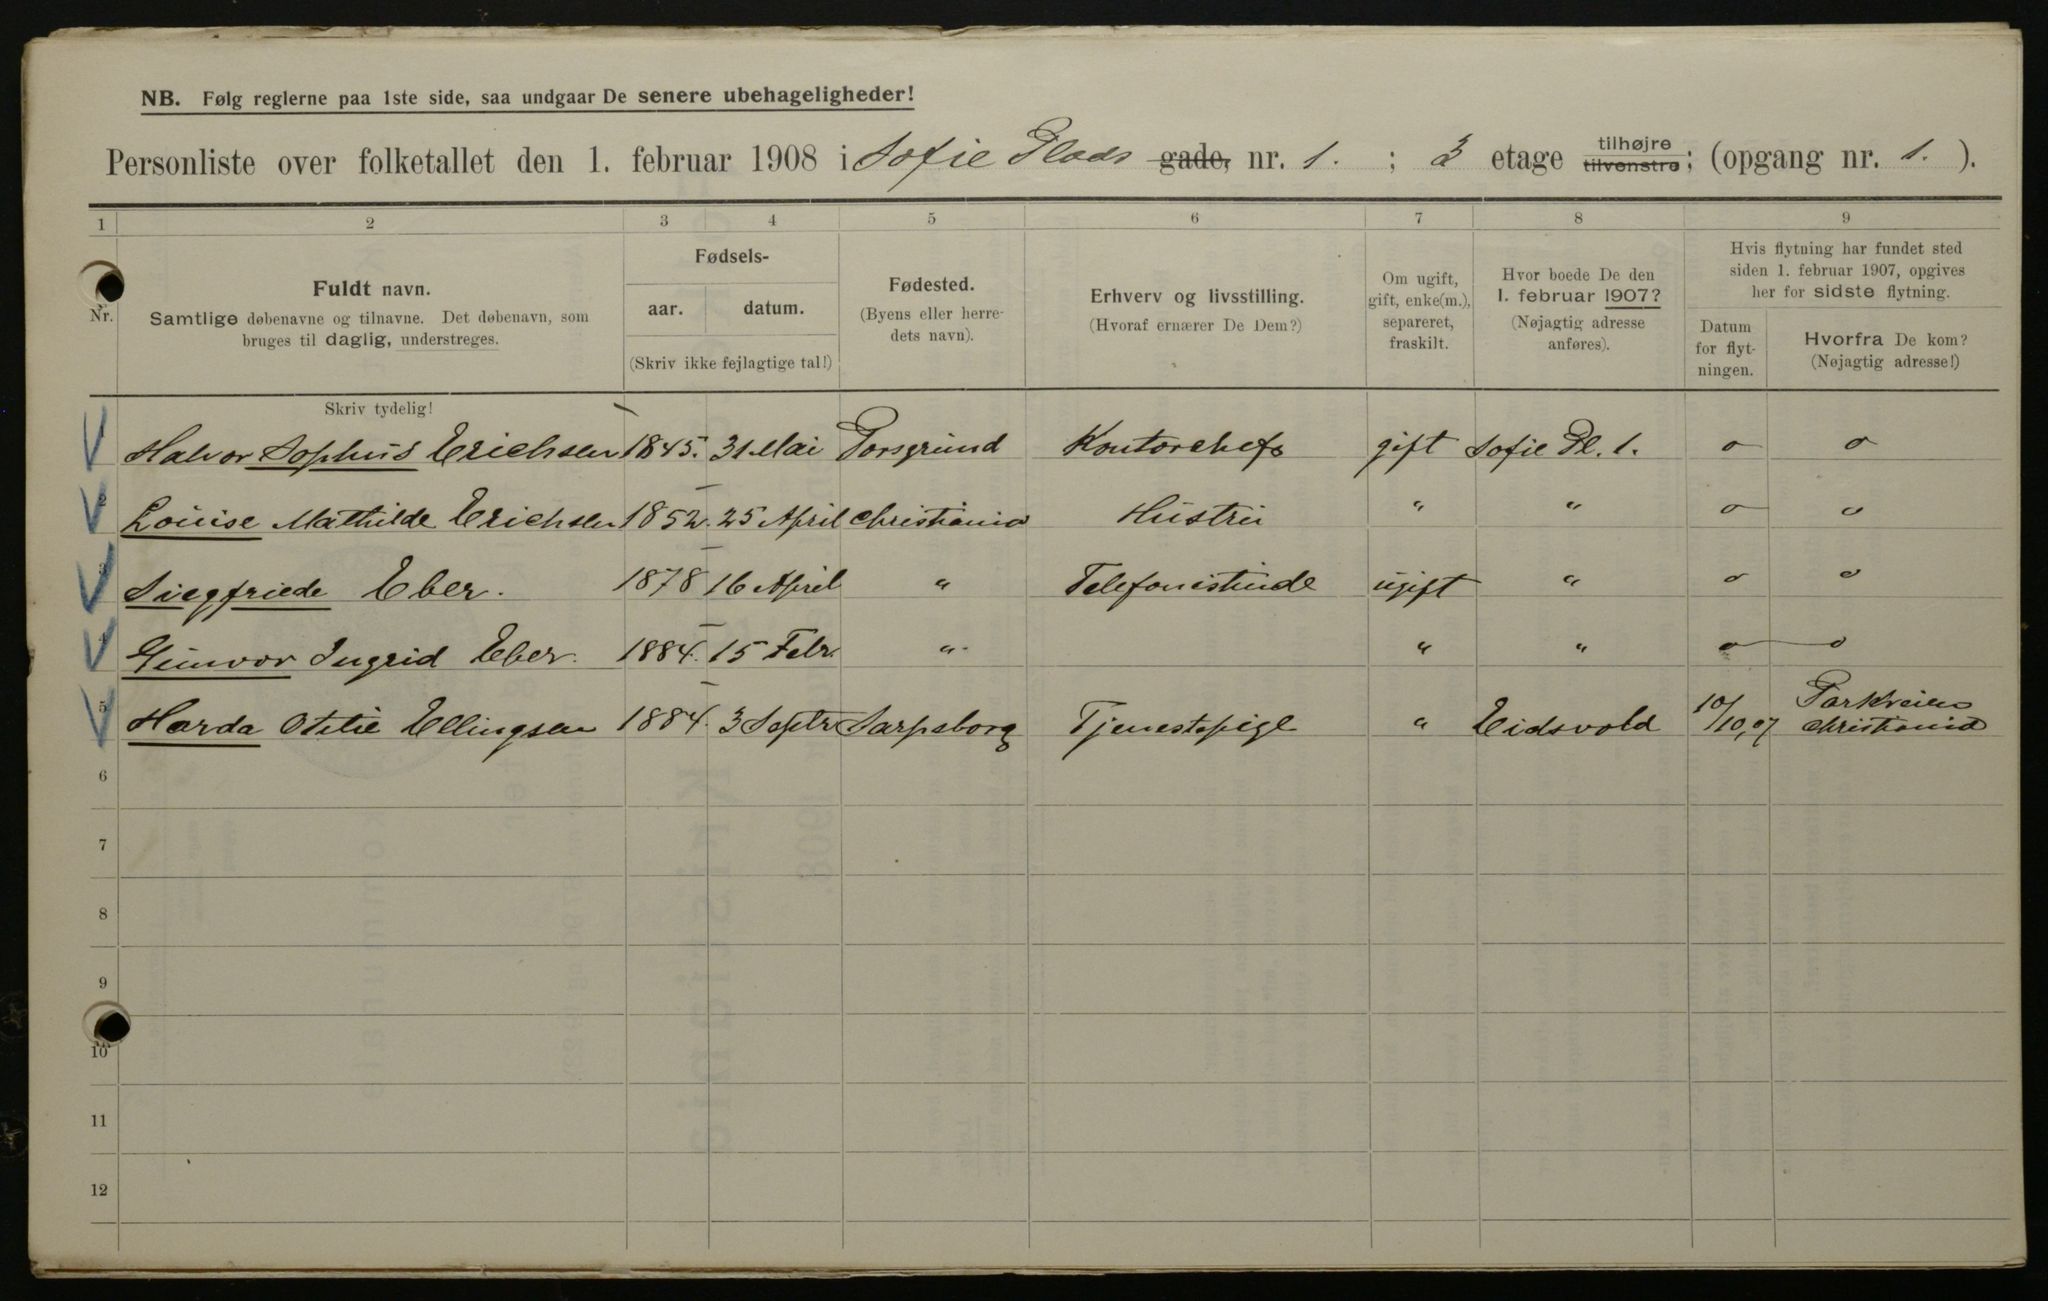 NB. Følg reglerne paa 1ste side, saa undgaar De senere ubehageligheder!
Personliste over folketallet den 1. februar 1908 i Sofie Plads gade, nr. 1. ; 3 etage tilhøjre tilvenstre; (opgang nr. 1. ).
1 2 3 4 5 6 7 8 9
Nr.
Fuldt navn.
Samtlige døbenavne og tilnavne. Det døbenavn, som
bruges til daglig, understreges.
Skriv tydelig!
Fødsels-
aar. datum.
(Skriv ikke fejlagtige tal!)
Fødested.
(Byens eller herre-
dets navn).
Erhverv og livsstilling.
(Hvoraf ernærer De Dem?)
Om ugift,
gift, enke(m.),
separeret,
fraskilt.
Hvor boede De den
1. februar 1907?
(Nøjagtig adresse
anføres).
Hvis flytning har fundet sted
siden 1. februar 1907, opgives
her for sidste flytning.
Datum
for flyt-
ningen.
Hvorfra De kom?
(Nøjagtig adresse!)
1 Halvor Sophus Erichsen 1845. 31 Mai Porsgrund Kontorchef gift Sofie Pl. 1. o o
2 Louise Mathilde Erichsen 1852. 25 April Christiania Hustru " " o o
3 Siegfriede Eber. 1878 16 April " Telefonistinde ugift " o o
4 Gunvor Ingrid Eber. 1884. 15 Febr. " " " o o
5 Harda Otilie Ellingsen 1884. 3 Septr Sarpsborg Tjenestepige " Eidsvold 10/10,07 Parkveien
Christiania
6
7
8
9
10
11
12